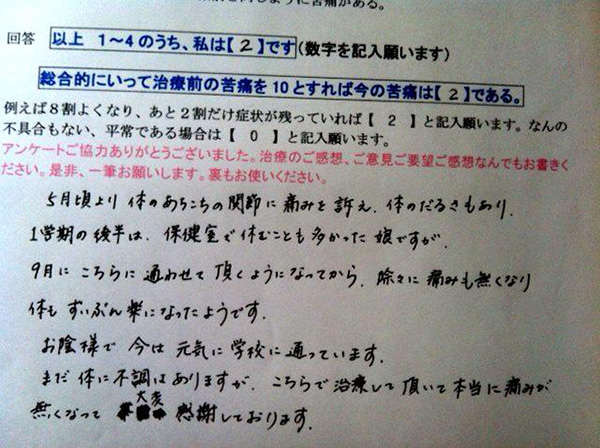 回答 以上 1～4のうち、私は【 2 】です(数字を記入願います)
総合的にいって治療前の苦痛を10とすれば今の苦痛は【 2 】である。
例えば8割よくなり、あと2割だけ症状が残っていれば【 2 】と記入願います。なんの
不具合もない、平常である場合は【 0 】と記入願います。
アンケートご協力ありがとうございました。治療のご感想、ご意見ご要望ご感想なんでもお書きく
ださい。是非、一筆お願いします。裏もお使いください。
5月頃より 体のあちこちの関節に痛みを訴え、体のだるさもあり、
1学期の後半は、保健室で休むことも多かった娘ですが、
9月に こちらに通わせて頂くようになってから、除々に痛みも無くなり
体も ずいぶん楽になったようです。
お陰様で 今は 元気に学校に通っています。
まだ 体に不調はありますが、こちらで治療して頂いて本当に痛みが
無くなって 大変 感謝しております。